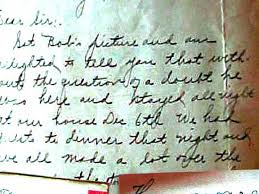 Dear Sir:
Got Bob's picture and am
lighted to tell you that with-
out the question of a doubt he
was here and stayed all night
at our house Dec 6th We had
to dinner that night and
we all made a lot over the
Th